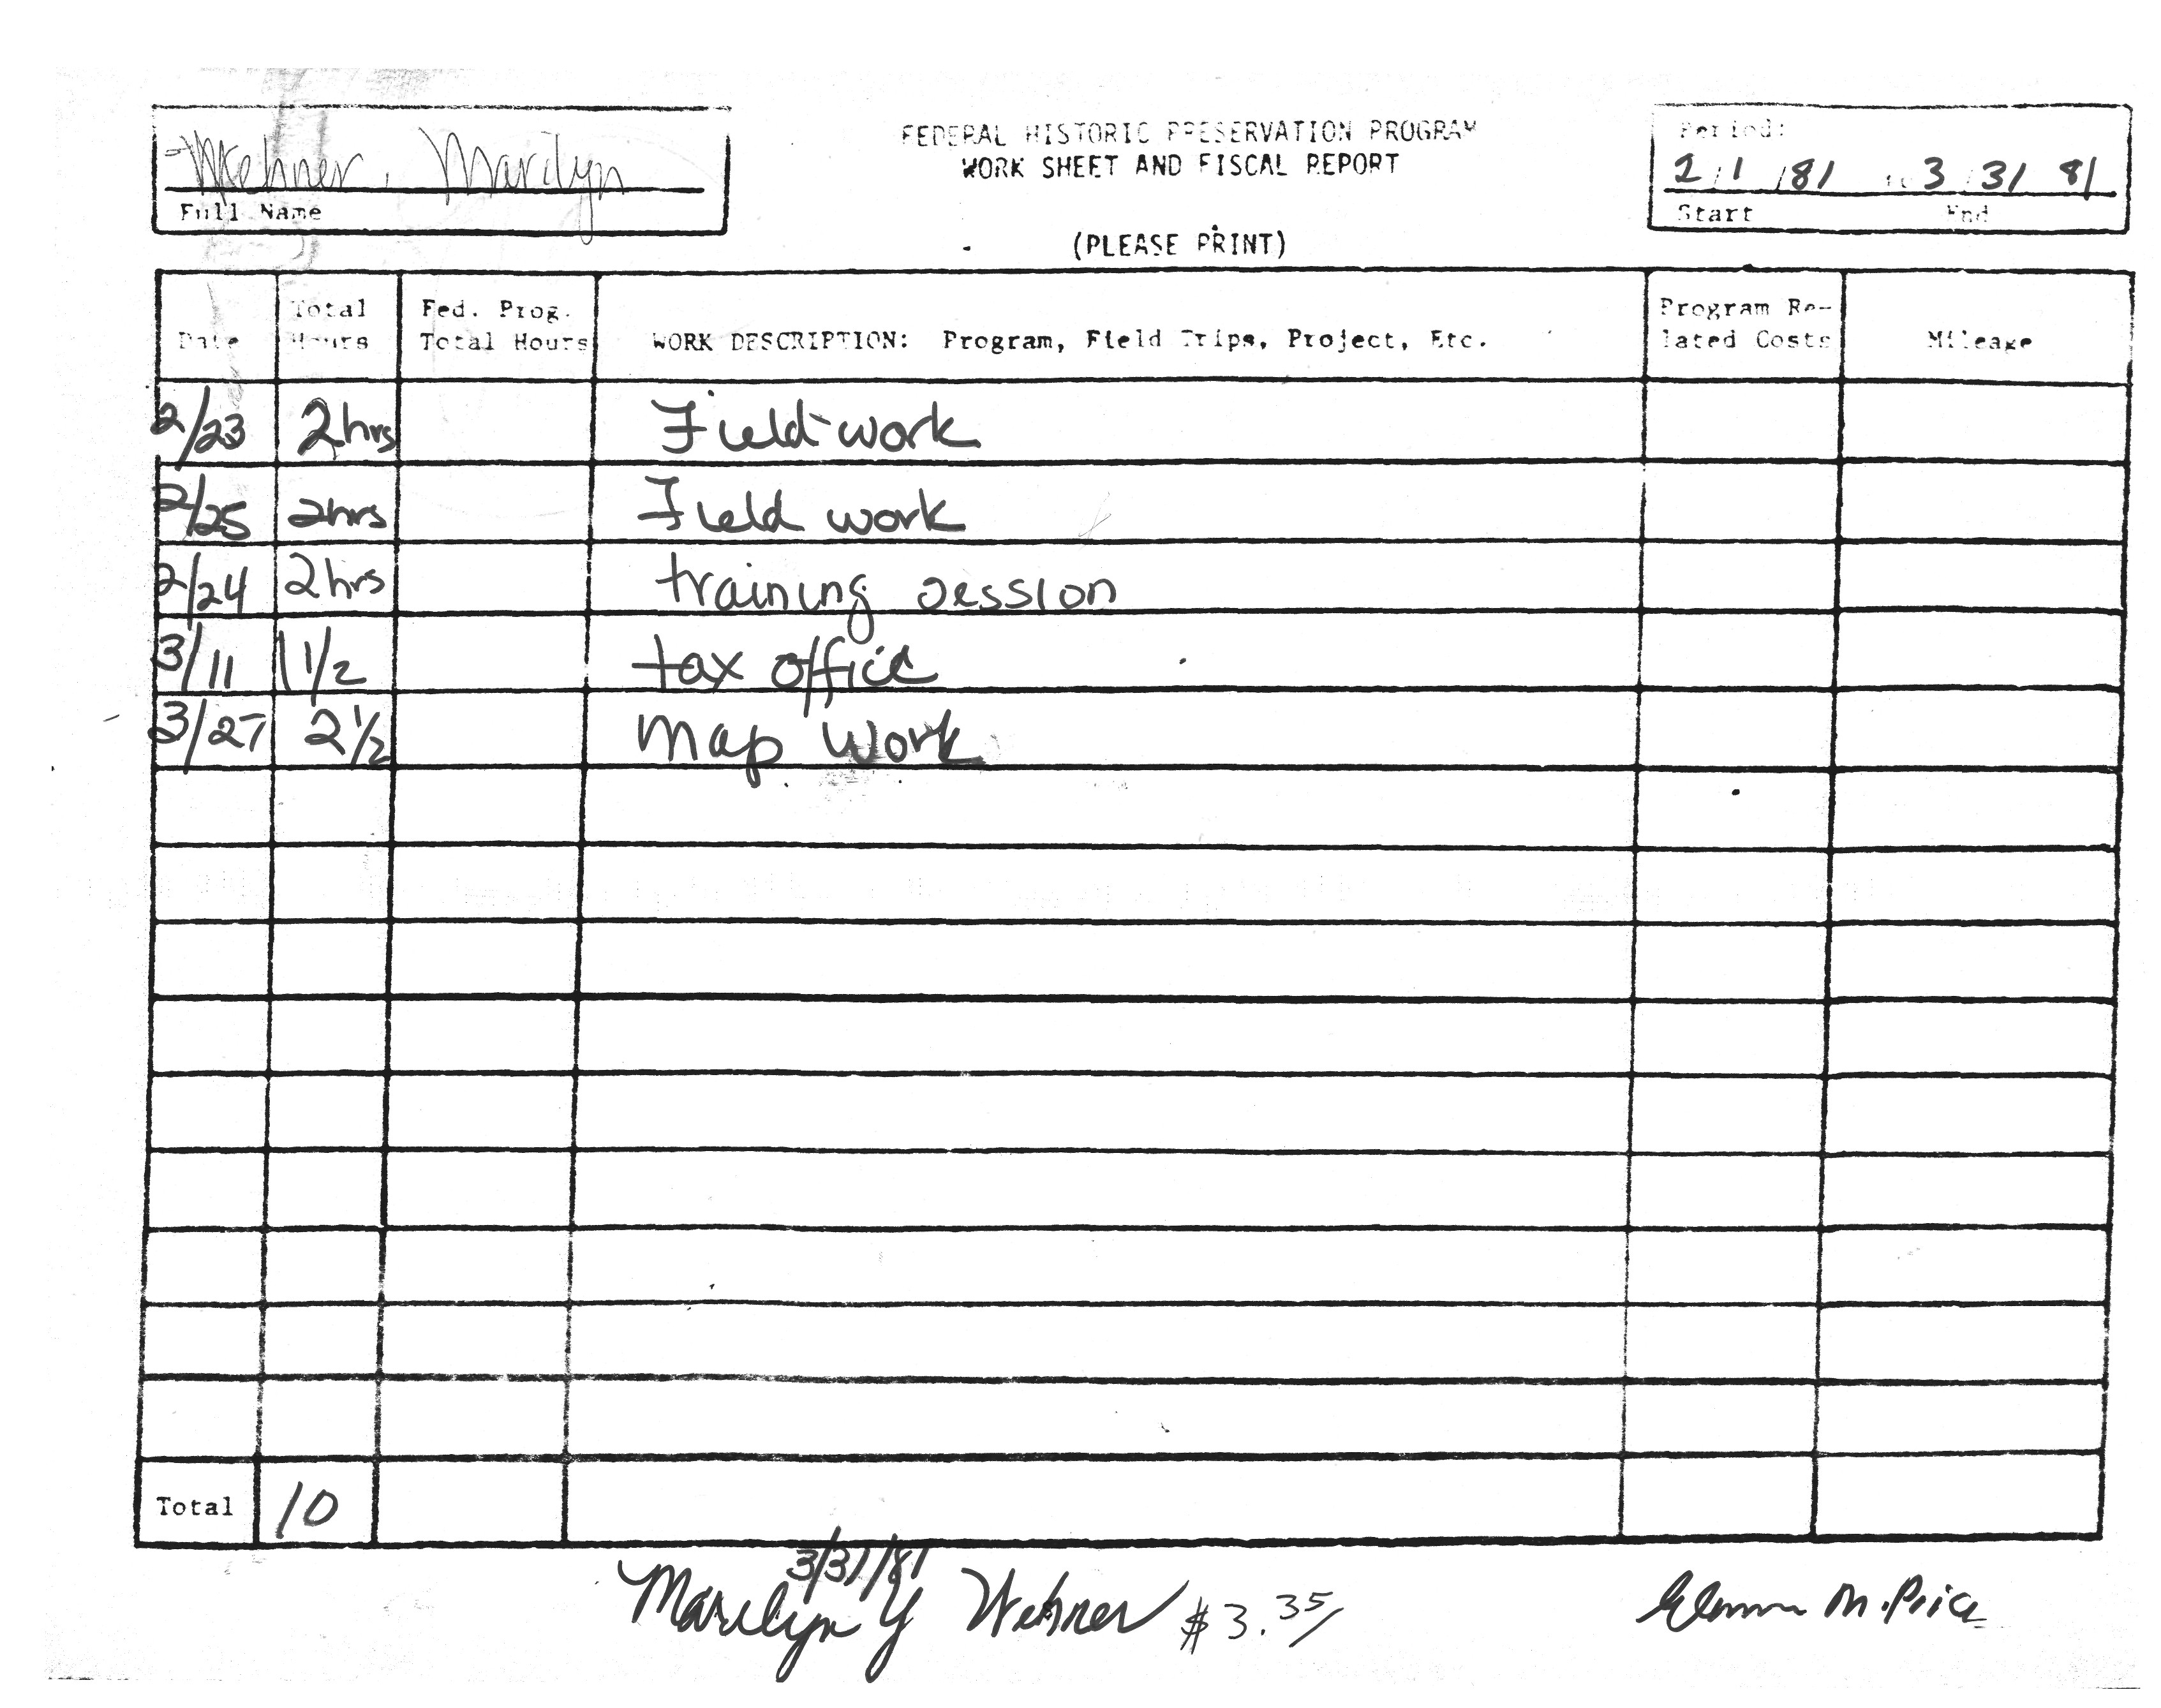 Wehner, Marilyn
Full Name
FEDERAL HISTORIC PRESERVATION PROGRAM
WORK SHEET AND FISCAL REPORT
(PLEASE PRINT)
Period:
2/1/81 to 3/31 81
Start End
Date Total Hours Fed. Prog. Total Hours WORK DESCRIPTION: Program, Field Trips, Project, Etc. Program Re-lated Costs Mileage
2/23 2hrs Field work
2/25 2hrs Field work
2/24 2hrs training session
3/11 1 1/2 tax office
3/27 2 1/2 Map Work
Total 10
3/31/81
Marilyn Y Wehner $3.35/
M. Price